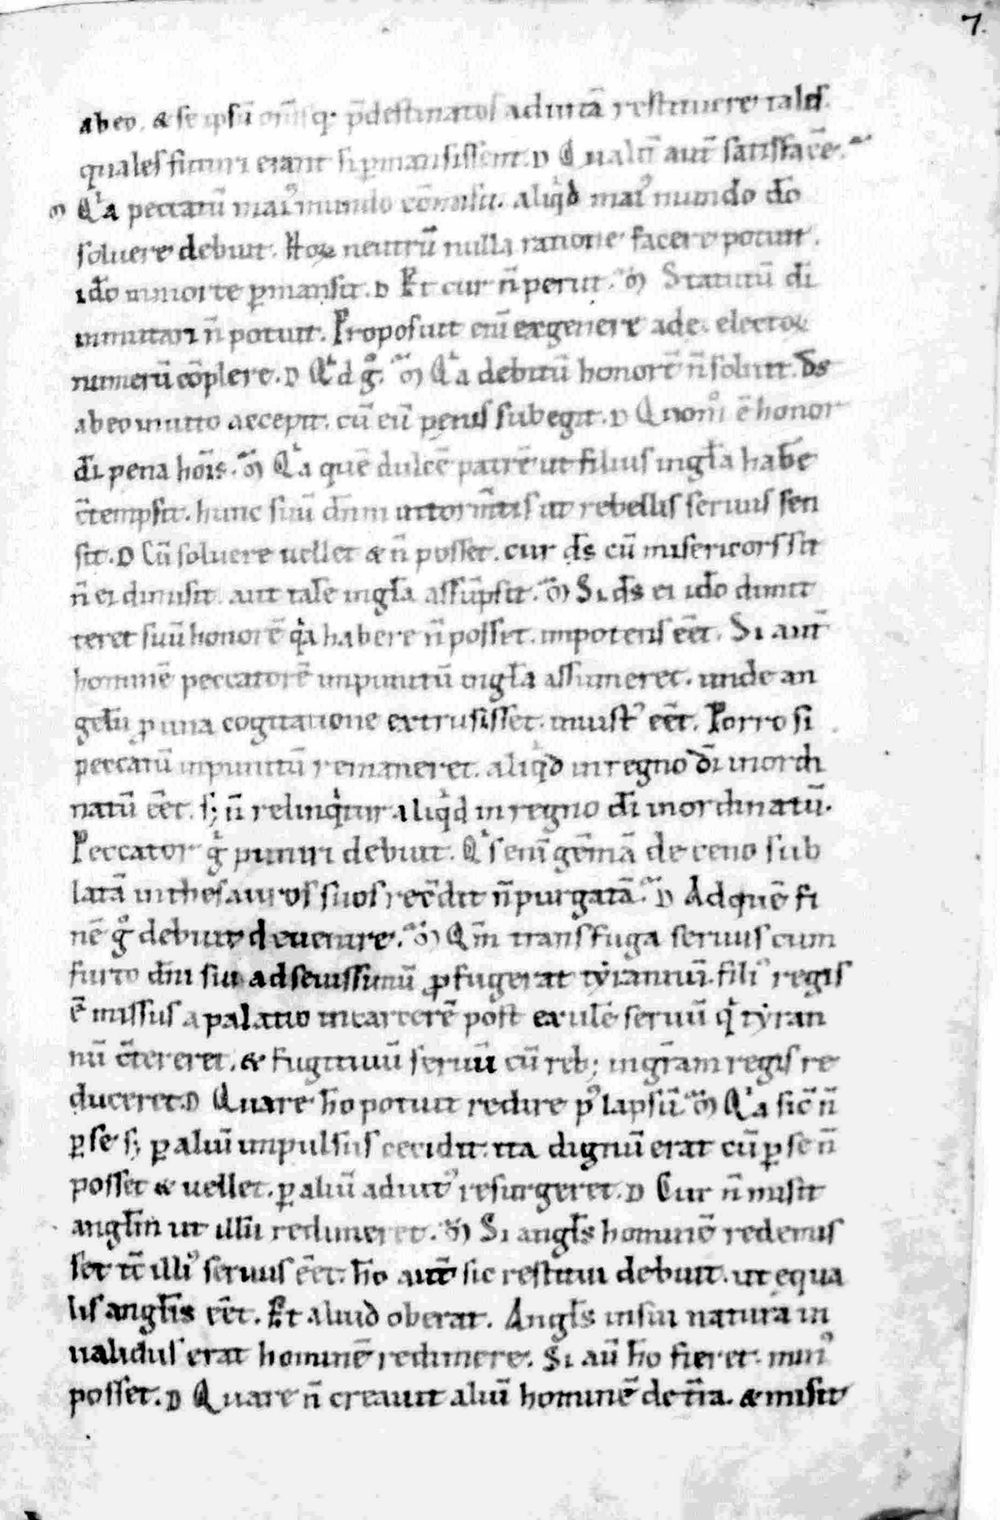 7.
ab eo. & se ipsū om̄sq; p̄destinatos ad uitā restituere tales
quales futuri erant si ꝑmansissent. D Qualit̄ aut̄ satisfac̄e.
ᴍ Qͥa peccatū maiꝰ mundo cōmisit. aliqͥd maiꝰ mundo dō
soluere debuit. Hoꝝ neutrū nulla ratione facere potuit.
iđo in morte ꝑmansit. D Et cur n̄ periit. ᴍ Statutū dī
inmutari n̄ potuit. Proposuit eni ex genere ade. electoꝝ
numerū cōplere. D Qͥd gͦ. ᴍ Qͥa debitū honorē n̄ soluit. Ds̄
ab eo inuito accepit. cū eū penis subegit. D Quom̊ ē honor
dī pena hōis. ᴍ Qͥa quē dulcē patrē ut filius in gl̄a habē
c̄tempsit. hunc suū dn̄m in torm̄tis ut rebellis seruus sen
sit. D Cū soluere uellet & n̄ posset. cur ds̄ cū misericors sit
n̄ ei dimisit. aut talē in gl̄a assūpsit. ᴍ Si ds̄ ei iđo dimit
teret suū honorē qͥa habere n̄ posset. impotens eēt. Si aut̄
hominē peccatorē inpunitū in gl̄a assumeret. unde an
gelū ꝓ una cogitatione extrusisset. iniustꝰ eēt. Porro si
peccatū inpunitū remaneret. aliqͥd in regno dī inordi
natū eēt. s; n̄ relinqͥtur aliqͥd in regno dī inordinatū.
Peccator gͦ puniri debuit. Qͥs enī gēmā de ceno sub
latā in thesauros suos recōdit n̄ purgatā. D Ad quē fi
nē gͦ debuit deuenire. ᴍ Qm̄ transfuga seruus cum
furto dn̄i sui ad seuissimū ꝓfugerat tẏrannū. filiꝰ regis
ē missus a palatio in carcerē post exulē seruū qͥ tẏran
nū c̄tereret. & fugitiuū seruū cū reb; in gr̄am regis re
duceret. D Quare hō potuit redire pꝰ lapsū. ᴍ Qͥa sic̄ n̄
ꝑ se s; ꝑ aliū inpulsus cecidit. ita dignū erat cū ꝑ se n̄
posset & uellet. ꝑ aliū adiutꝰ resurgeret. D Cur n̄ misit
angl̄m ut illū redimeret. ᴍ Si angl̄s hominē redemis
set tc̄ illiꝰ seruus eēt. hō aut̄ sic restitui debuit. ut equa
lis angl̄is eēt. Et aliud oberat. Angl̄s in sui natura in
ualidus erat hominē redimere. Si aū hō fieret. minꝰ
posset. D Quare n̄ creauit aliū hominē de tr̄a. & misit